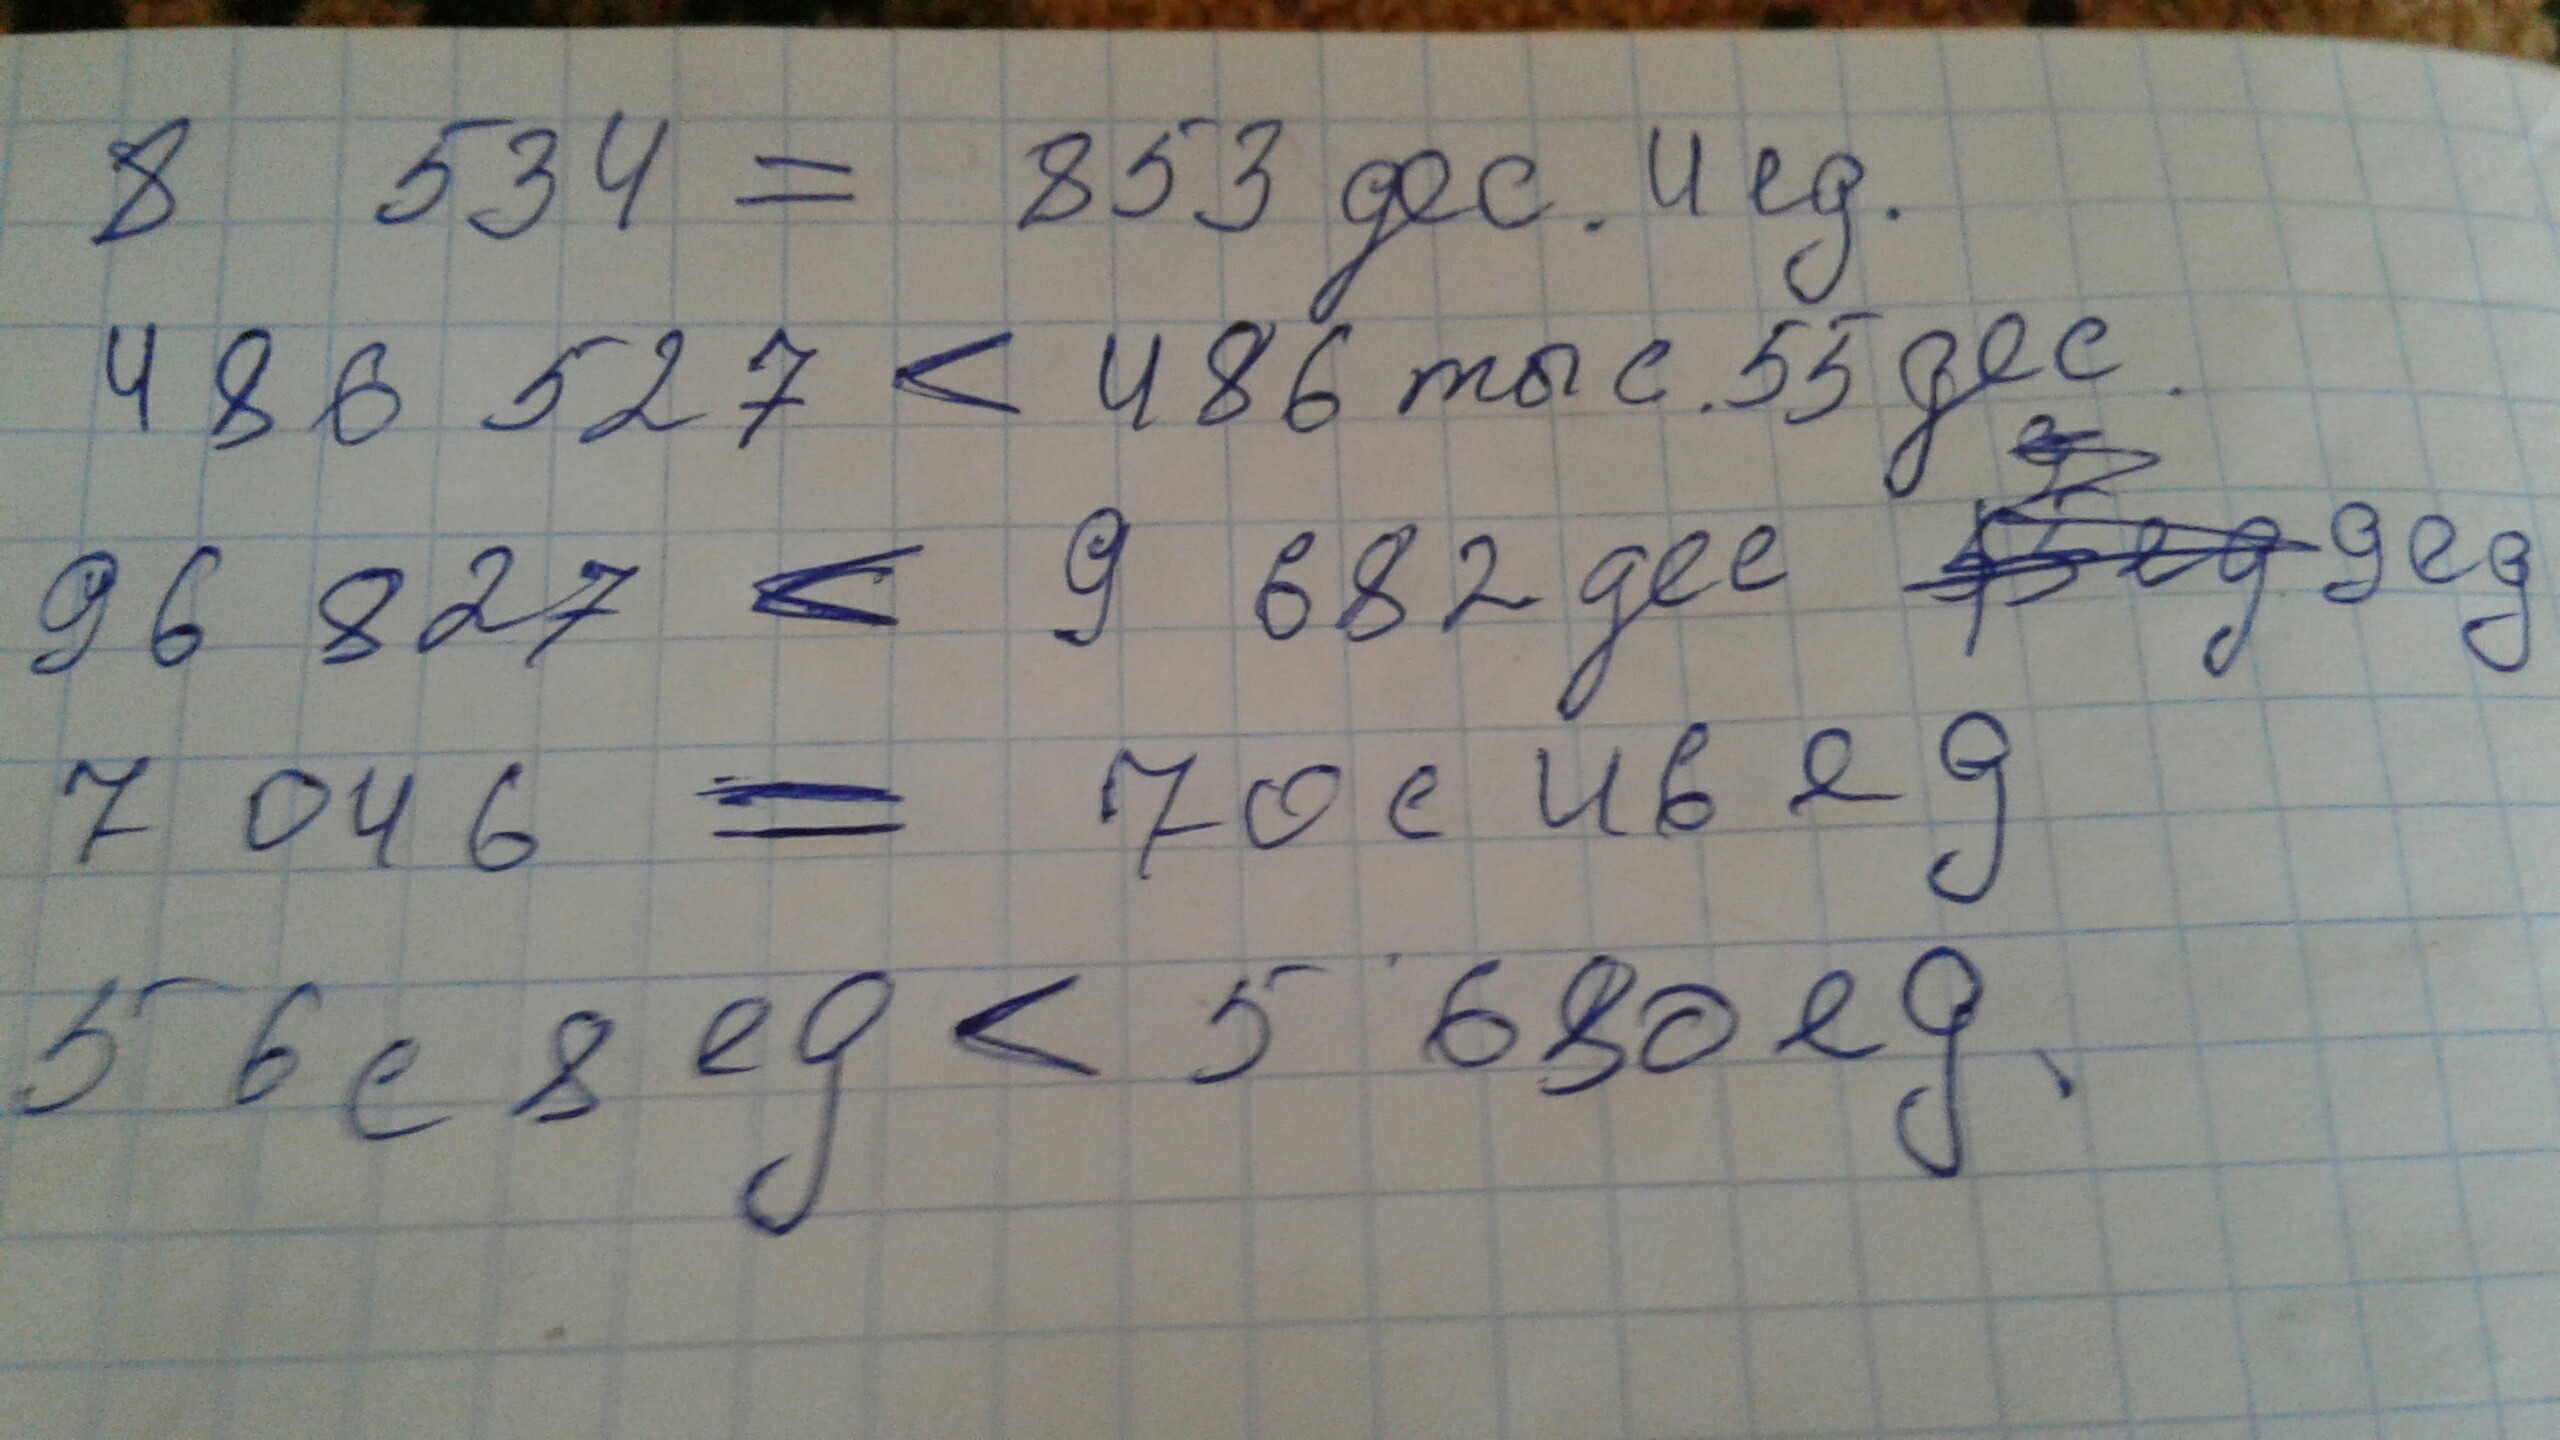 8 534 = 853 дес. 4 ед.
486 527 < 486 тыс. 55 дес.
96 827 < 9 682 дес 9 ед
7 046 = 70 с 46 ед
56 с 8 ед < 5 680 ед.